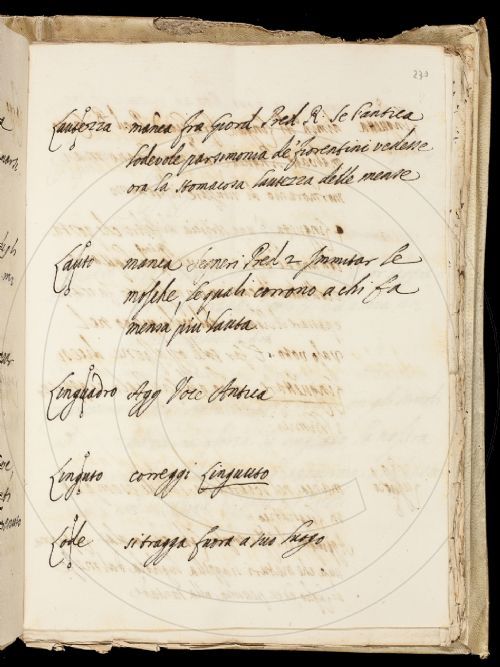 230
Lautezza manca fra Giord. Pred. R. Se l'antica
lodevole parsimonia de' fiorentini vedesse
ora la stomacosa lautezza delle mense
Lauto manca Segneri Pred. 2 Immitar le
mosche, le quali corrono a chi fa
mensa più lauta
Linguadro Agg Voce Antica
Linguto correggi Linguuto
Lode si tragga fuora a suo luogo